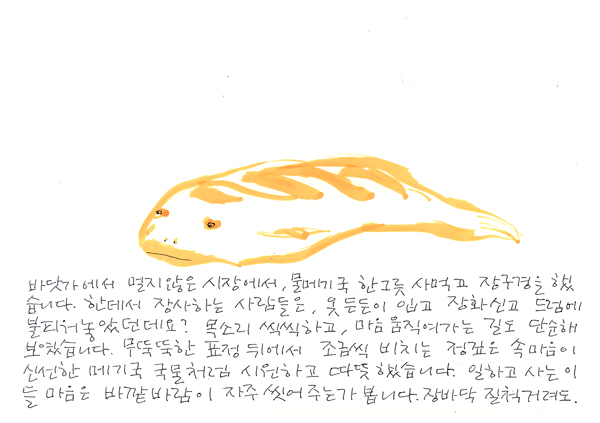 바닷가에서 멀지않은 시장에서, 물메기국 한그릇 사먹고 장구경을 했
습니다. 한데서 장사하는 사람들은, 옷든든이 입고 장화신고 드럼에
불피워놓았던데요? 목소리 씩씩하고, 마음움직여가는 길도 단순해
보였습니다. 무뚝뚝한 표정 뒤에서 조금씩 비치는 정깊은 속마음이
신선한 메기국 국물처럼 시원하고 따뜻했습니다. 일하고 사는 이
들 마음은 바깥바람이 자주 씻어주는가 봅니다. 장바닥 질척거려도.